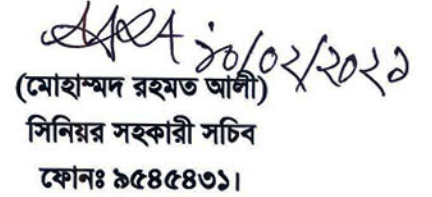 ১০/০২/২০২১
(মোহাম্মদ রহমত আলী)
সিনিয়র সহকারী সচিব
ফোনঃ ৯৫৪৫৪৩১।